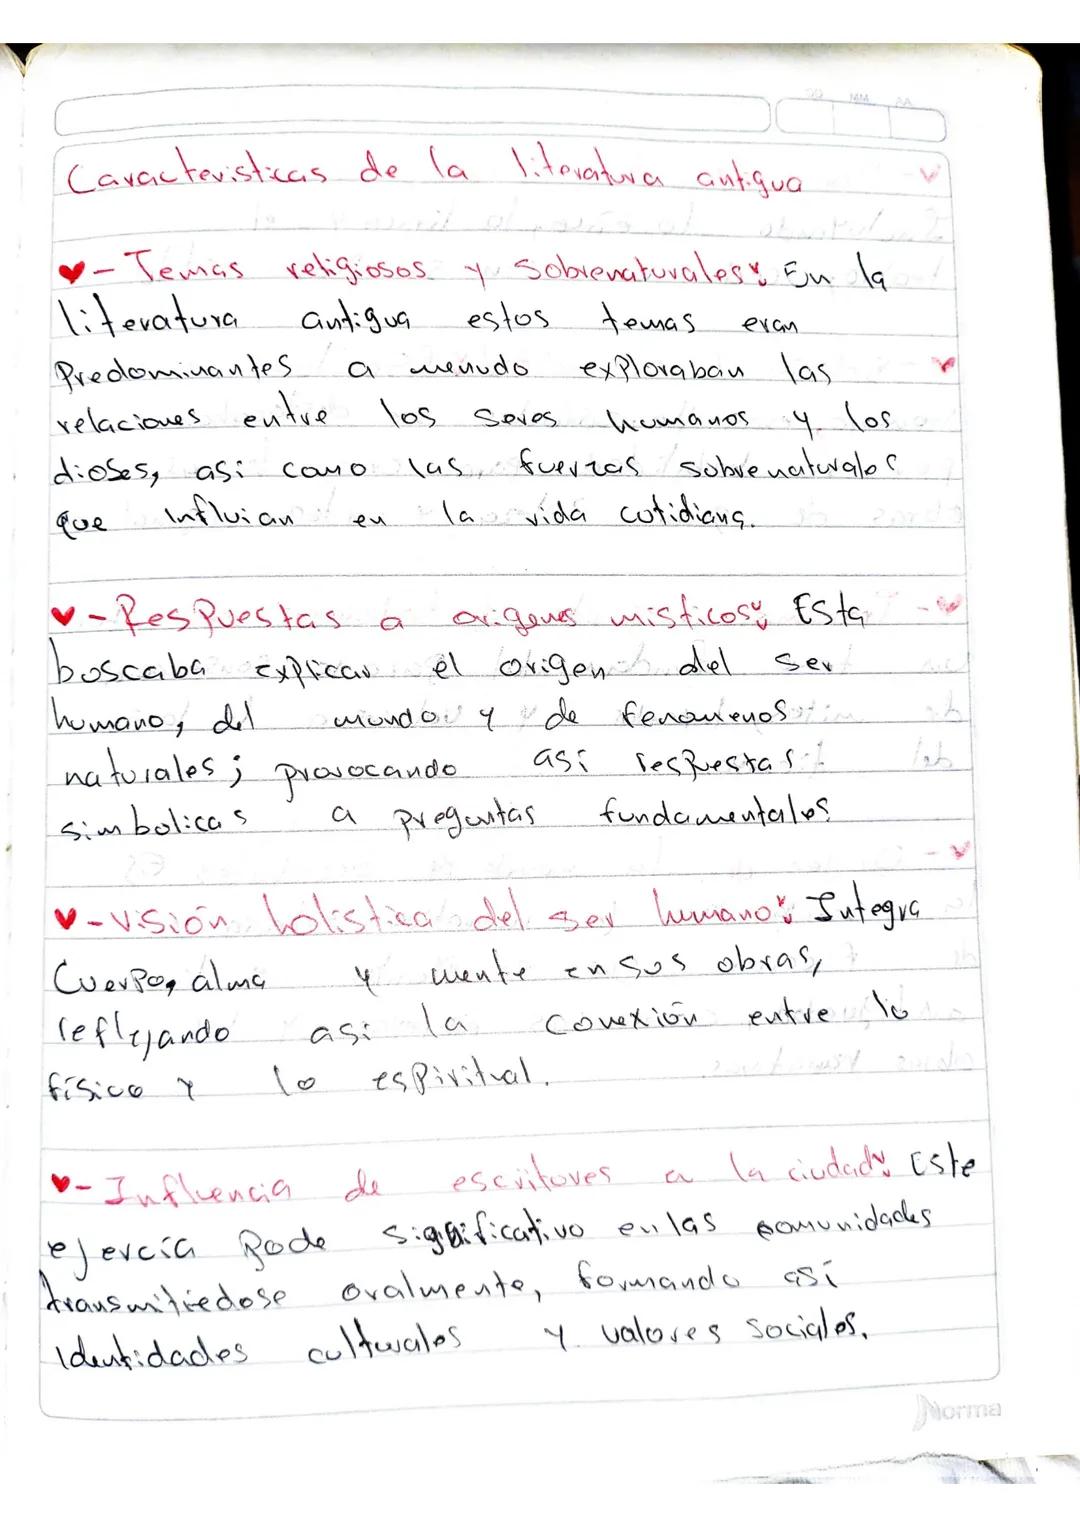 DD MM AA
Caracteristicas de la literatura antigua
♥- Temas religiosos y Sobrenaturales: En la
literatura antigua estos temas eran
Predominantes a menudo exploraban las
relaciones entre los seres humanos y los
dioses, asi como las fuerzas sobrenaturales
que Influian en la vida cotidiana.
♥- Respuestas a origenes misticos: Esta
boscaba explicar el origen del ser
humano, del mundo y de fenomenos
naturales; provocando así respuestas
simbolicas a preguntas fundamentales
♥- visión holistica del ser humano: Integra
Cuerpo, alma y mente en sus obras,
reflejando asi la conexión entre lo
físico y lo espiritual.
♥- Influencia de escritores a la ciudad: Este
ejercía Pode significativo en las comunidades
transmitiedose oralmente, formando así
Identidades culturales y valores sociales.
Norma